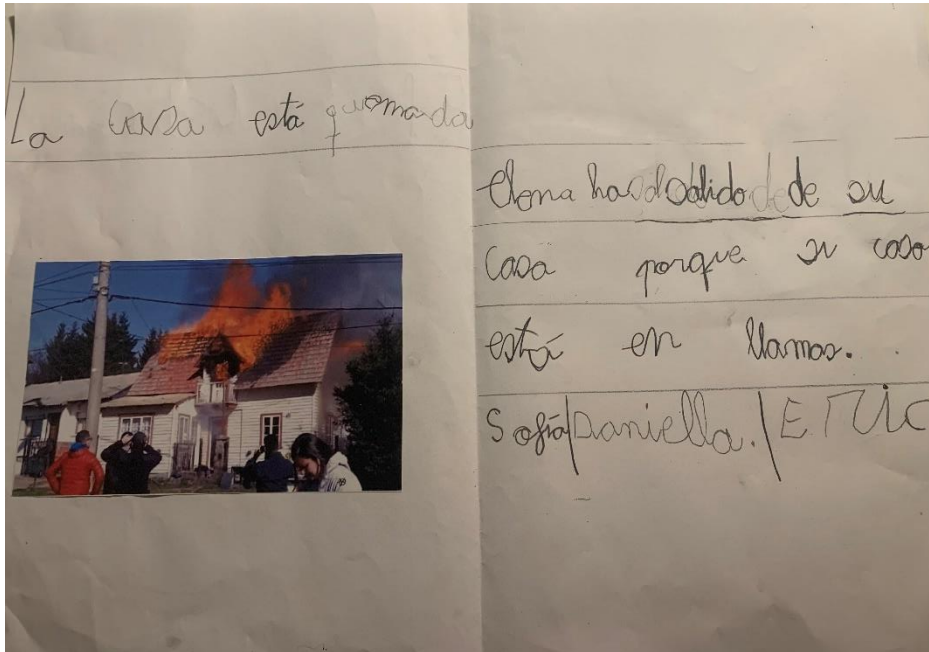 La casa está quemada
Elena ha salido de su
casa porque su casa
está en llamas.
Sofía/Daniella./ERIC